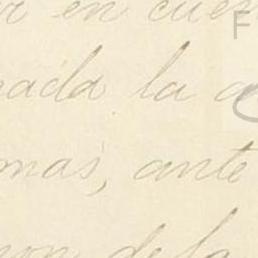 en cuen
F
rada la a
mas, ante
de la